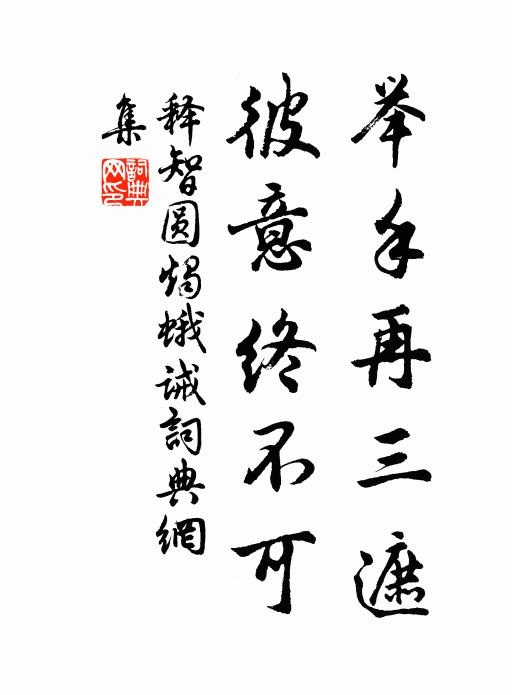 举手再三遮
彼意终不可
释智圆烛蛾诫詞典網
集
詞典網印